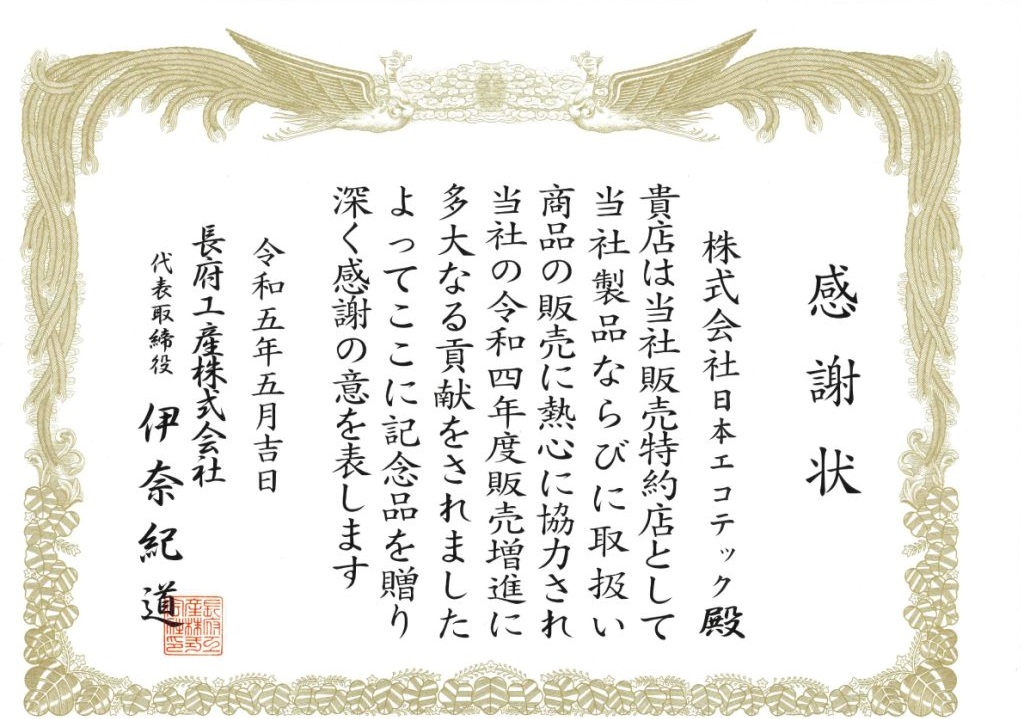 感謝状
株式会社日本エコテック殿
貴店は当社販売特約店として
当社製品ならびに取扱い
商品の販売に熱心に協力され
当社の令和四年度販売増進に
多大なる貢献をされました
よってここに記念品を贈り
深く感謝の意を表します
令和五年五月吉日
長府工産株式会社
代表取締役 伊奈紀道